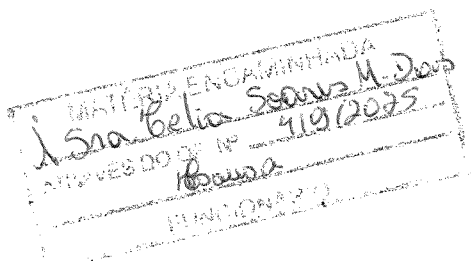 MATÉRIA ENCAMINHADA
À Sra Celia Soares M. Dias
ATRAVÉS DO OF Nº 4/9/2025
FUNCIONÁRIO